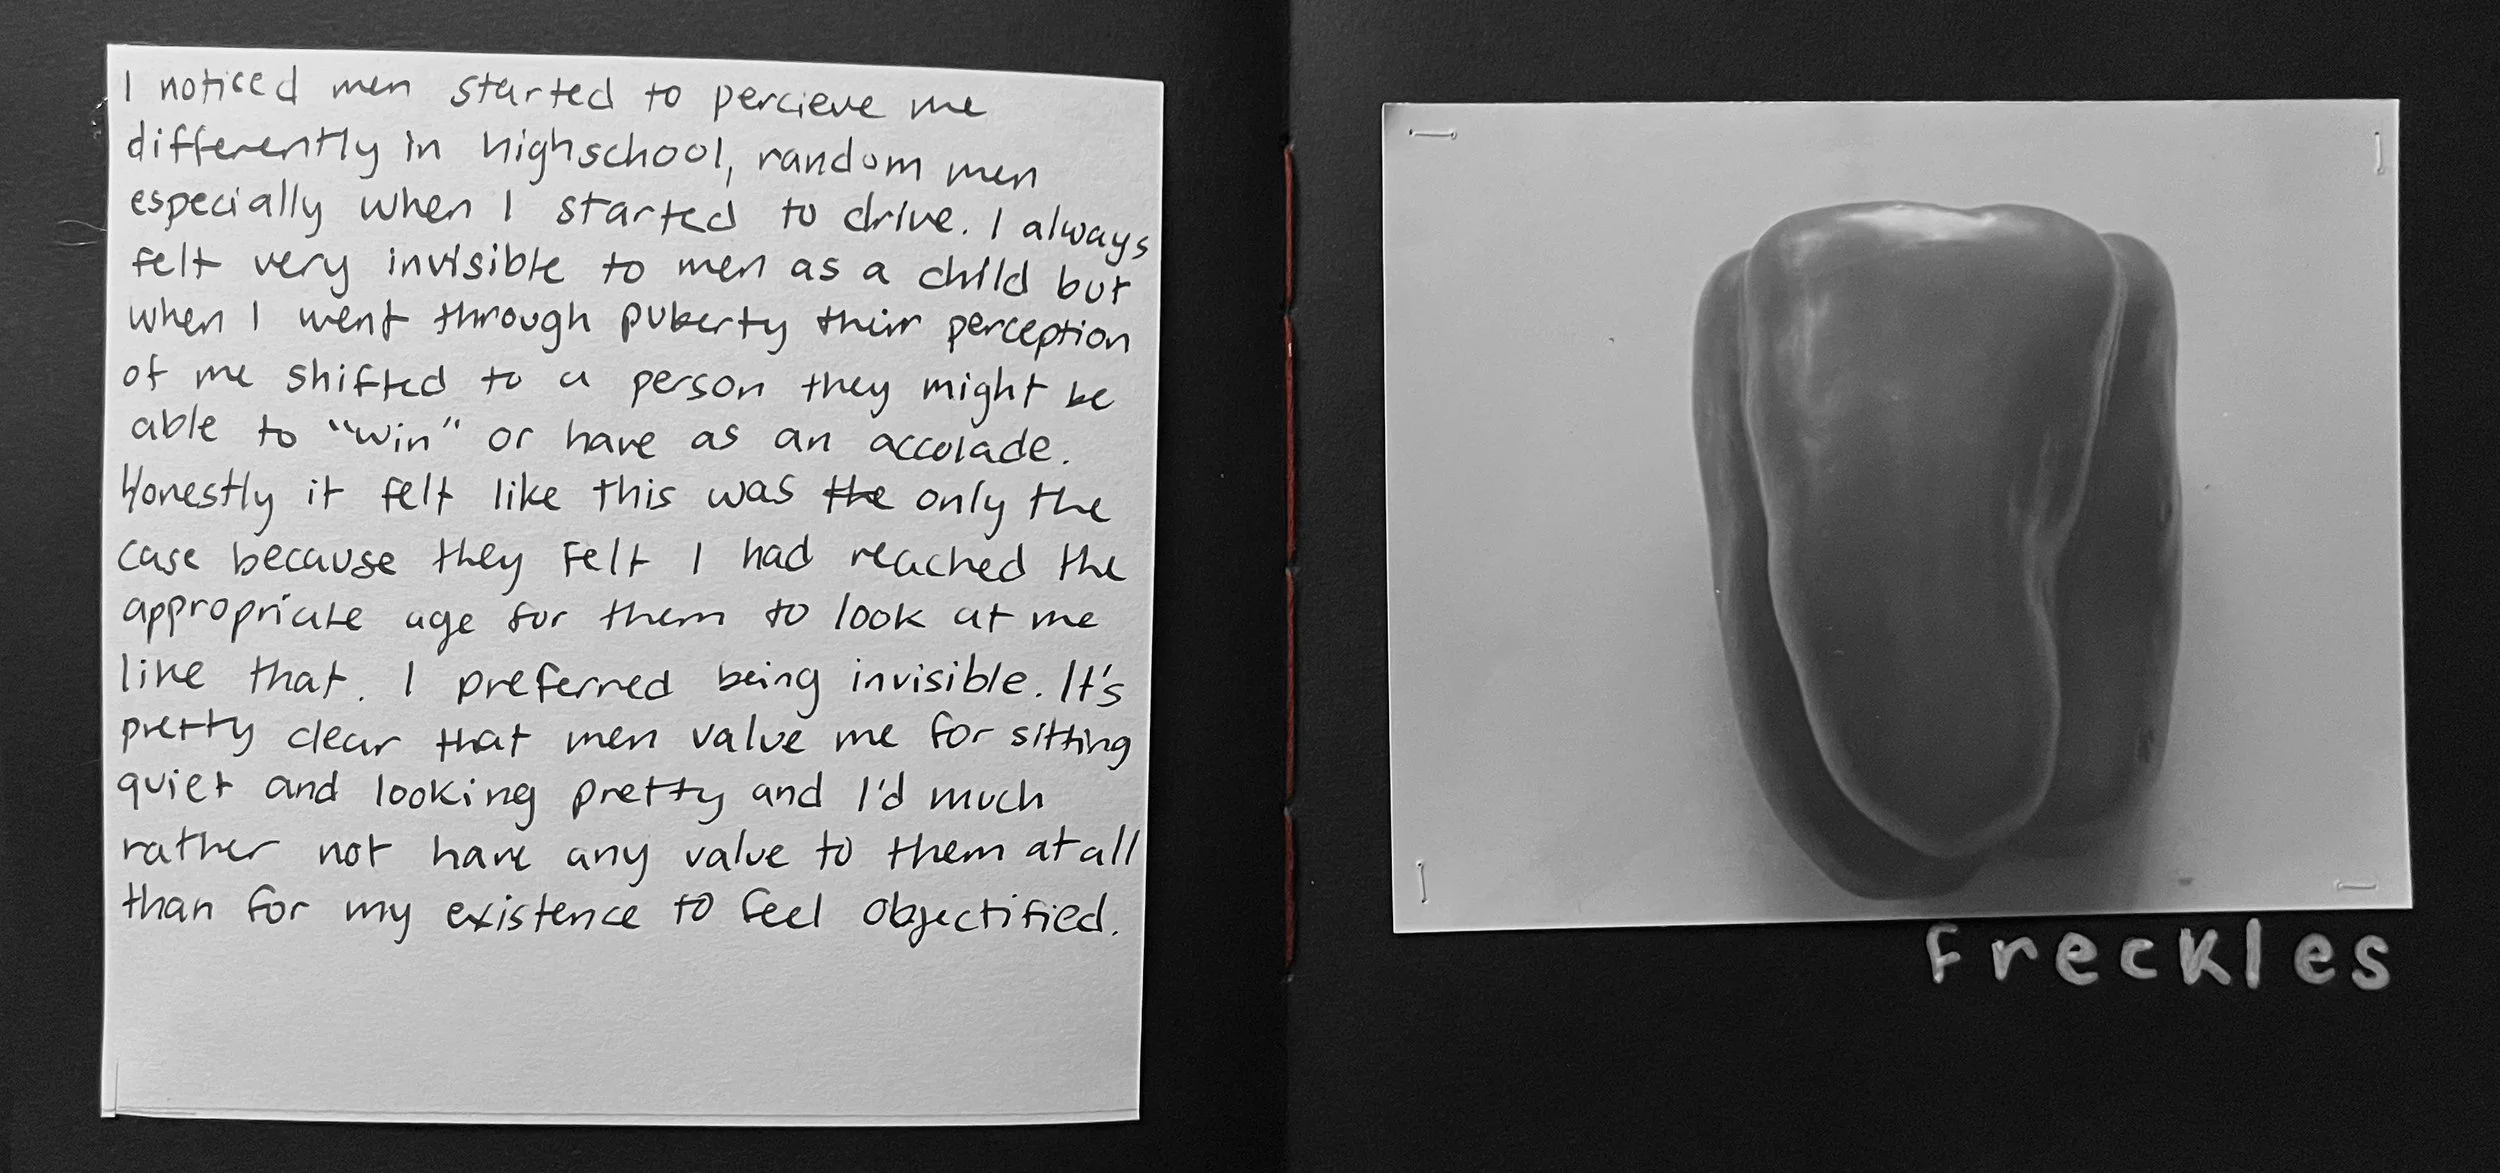 I noticed men started to percieve me
differently in highschool, random men
especially when I started to drive. I always
felt very invisible to men as a child but
when I went through puberty their perception
of me shifted to a person they might be
able to "win" or have as an accolade.
Honestly it felt like this was the only the
case because they felt I had reached the
appropriate age for them to look at me
like that. I preferred being invisible. It's
pretty clear that men value me for sitting
quiet and looking pretty and I'd much
rather not have any value to them at all
than for my existence to feel objectified.
Freckles